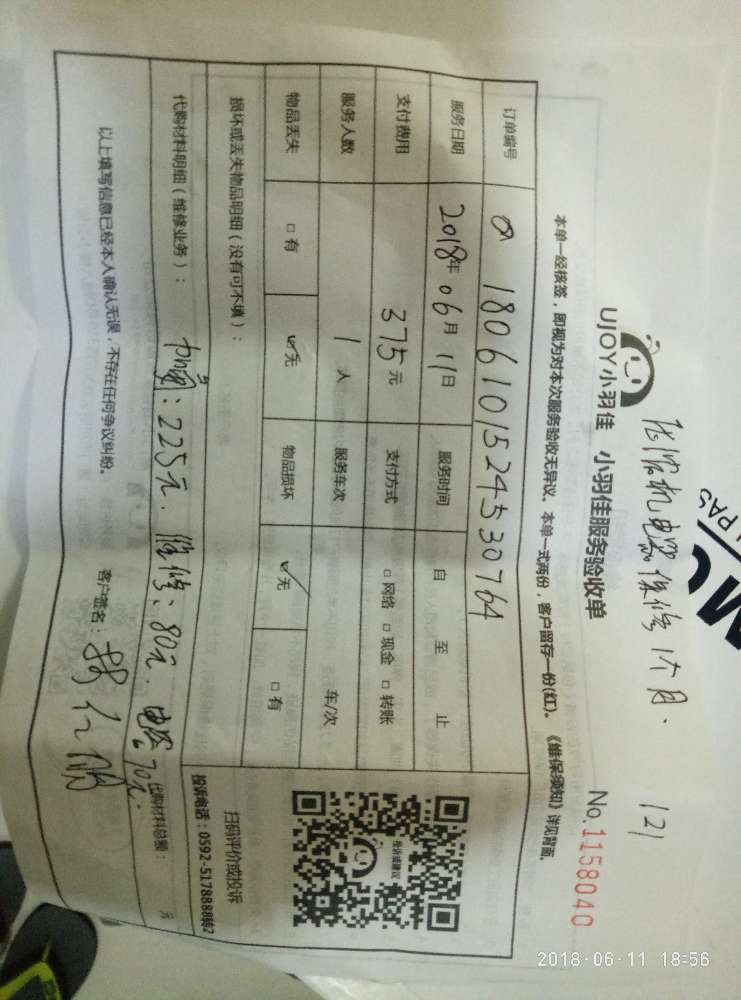 保修1个月.
121
UJOY小羽佳 小羽佳服务验收单
No.1158040
本单一经核签，即视为对本次服务验收无异议。本单一式两份，客户留存一份(红)。《维保须知》详见背面。
订单编号 1806101524530764
服务日期 2018年06月11日 服务时间 自 至 止
支付费用 375元 支付方式 □网络 □现金 □转账
服务人数 1人 服务车次 车/次
物品丢失 □有 ☑无 物品损坏 ☑无 □有
损坏或丢失物品明细（没有可不填）：
扫码评价或投诉
投诉电话：0592-5178888转2
投诉或建议
代购材料明细（维修业务）： 225元. 维修：80元. 70元. 代购材料总额： 元
以上填写信息已经本人确认无误，不存在任何争议纠纷。 客户签名：
2018-06-11 18:56